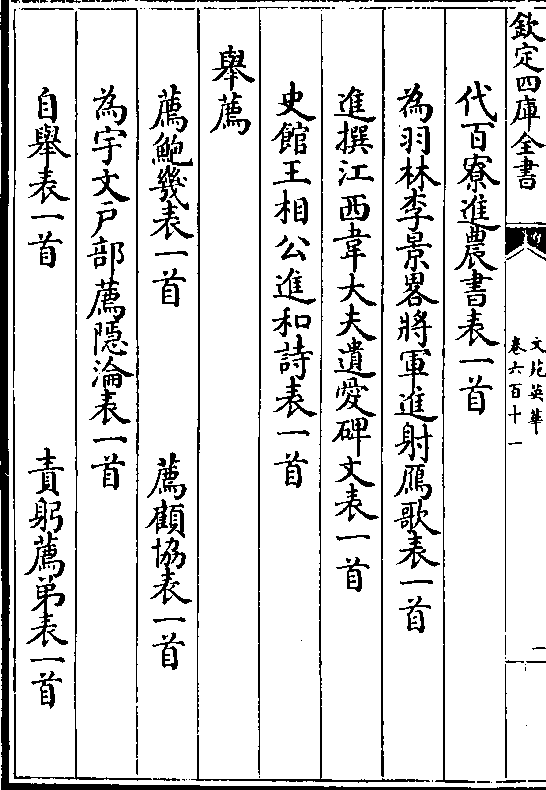 欽定四庫全書
文苑英華
卷六百十一
二
代百寮進農書表一首
為羽林李景畧將軍進射鴈歌表一首
進撰江西韋大夫遺愛碑文表一首
史館王相公進和詩表一首
舉薦
薦鮑幾表一首 薦顧協表一首
為宇文戸部薦隠淪表一首
自舉表一首 責躬薦弟表一首